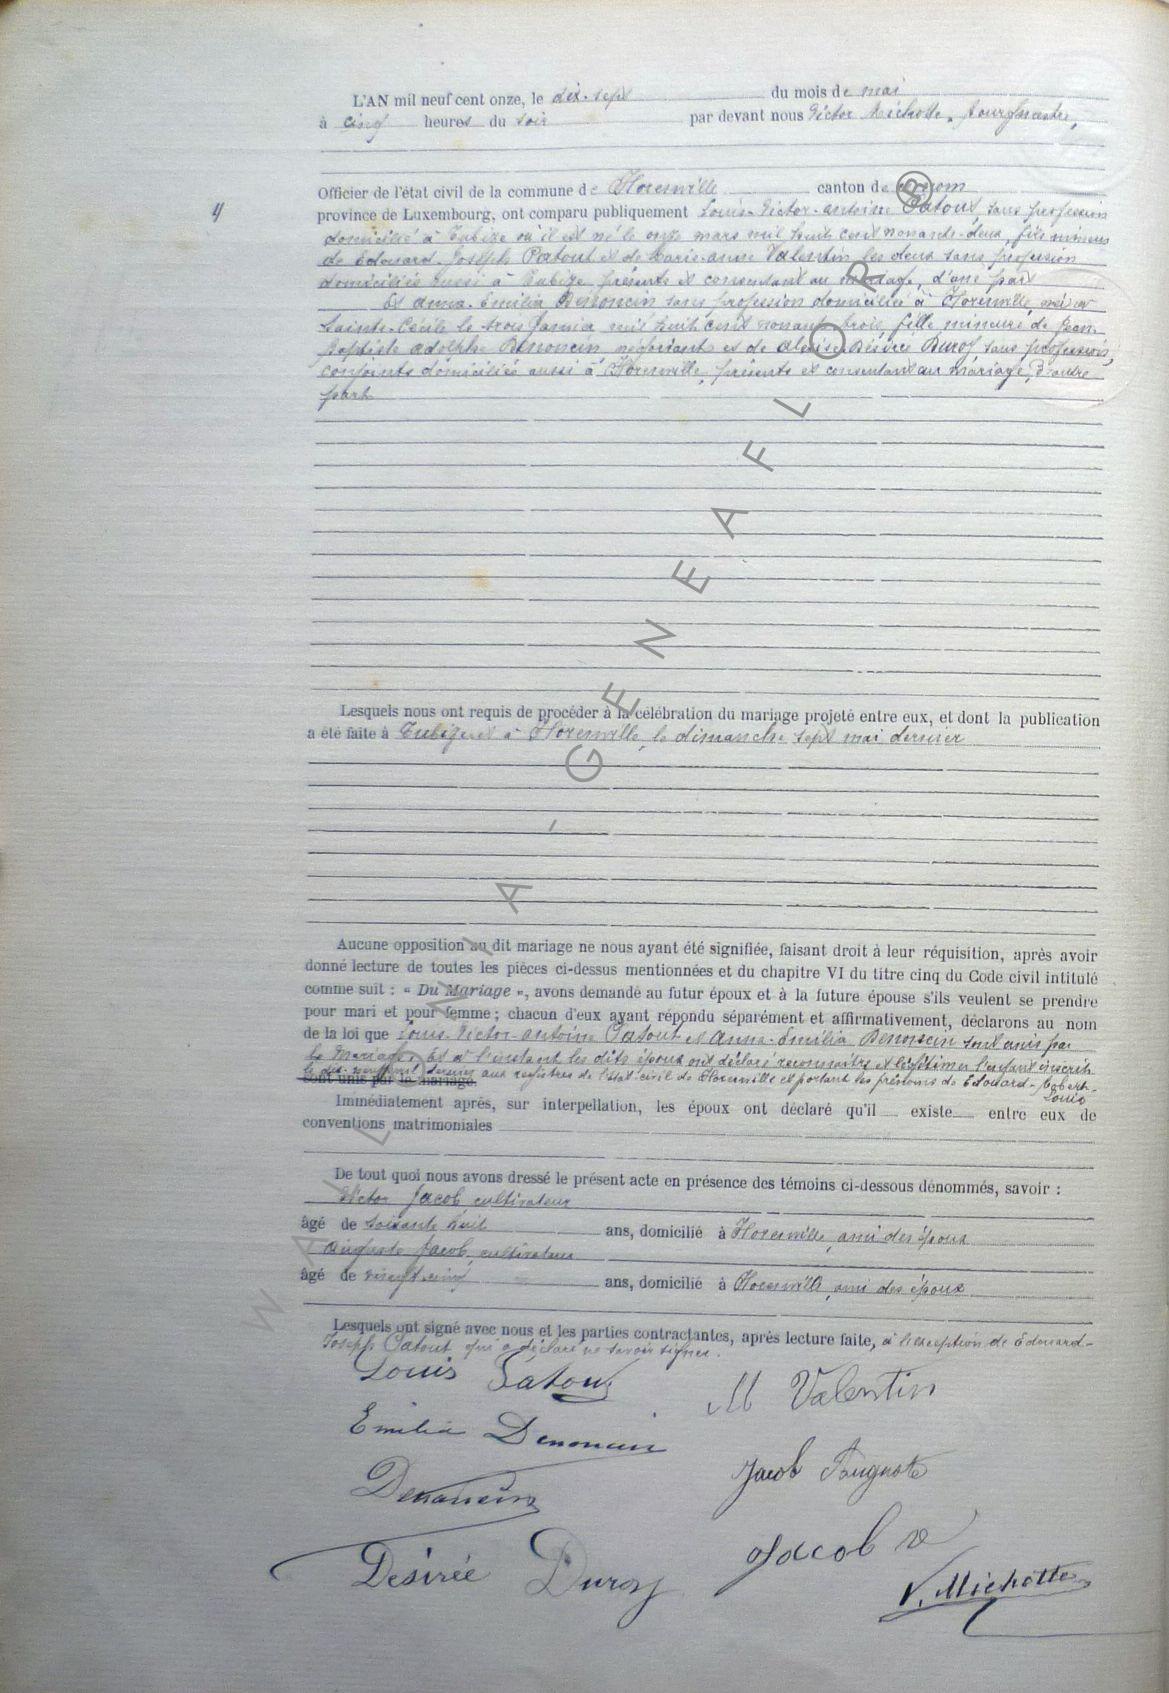 L'AN mil neuf cent onze, le dix-sept du mois de mai
à cinq heures du soir par devant nous Victor Michotte, bourgmestre,
Officier de l'état civil de la commune de canton de
4
province de Luxembourg, ont comparu publiquement Louis-Victor-Antoine Patout, sans profession
domicilié à Tubize où il est né le onze mars mil huit cent nonante-deux, fils mineur
de Edouard-Joseph Patout et de Marie-Anne Valentin les deux sans profession
domiciliés aussi à Tubize présents et consentant au mariage, d'une part
Et Anna-Emilia Denoncin sans profession domiciliée à née à
Sainte-Cécile le trois janvier mil huit cent nonante-trois, fille mineure de Jean-
Baptiste Adolphe Denoncin négociant et de Désirée Duroy sans profession,
conjoints domiciliés aussi à présents et consentant au mariage, d'autre
part
Lesquels nous ont requis de procéder à la célébration du mariage projeté entre eux, et dont la publication
a été faite à Tubize et à le dimanche sept mai dernier
Aucune opposition au dit mariage ne nous ayant été signifiée, faisant droit à leur réquisition, après avoir
donné lecture de toutes les pièces ci-dessus mentionnées et du chapitre VI du titre cinq du Code civil intitulé
comme suit : « Du Mariage », avons demandé au futur époux et à la future épouse s'ils veulent se prendre
pour mari et pour femme ; chacun d'eux ayant répondu séparément et affirmativement, déclarons au nom
de la loi que Louis-Victor-Antoine Patout et Anna-Emilia Denoncin sont unis par
le mariage. Et à l'instant les dits époux ont déclaré reconnaître et légitimer l'enfant inscrit
le dernier aux registres de l'état-civil de et portant les prénoms de Edouard-Robert-
Louis
sont unis par le mariage.
Immédiatement après, sur interpellation, les époux ont déclaré qu'il existe entre eux de
conventions matrimoniales
De tout quoi nous avons dressé le présent acte en présence des témoins ci-dessous dénommés, savoir :
Victor Jacob cultivateur
âgé de soixante huit ans, domicilié à ami des époux
Auguste Jacob, cultivateur
âgé de vingt-cinq ans, domicilié à ami des époux
Lesquels ont signé avec nous et les parties contractantes, après lecture faite, à l'exception de Edouard-
Joseph Patout qui a déclaré ne savoir signer.
Louis Patout
M Valentin
Emilia Denoncin
Jacob Auguste
Denoncin
Jacob V
Désirée Duroy
V. Michotte
WALLONIA - GENEAFLOR ®